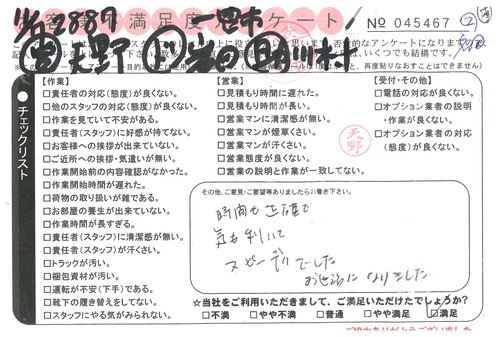 不満足度 アンケート!
一宮市
No 045467
天野
チェックリスト
【作業】
□責任者の対応(態度)が良くない。
□他のスタッフの対応(態度)が良くない。
□作業を見ていて不安がある。
□責任者(スタッフ)に好感が持てない。
□お客様への挨拶が出来ていない。
□ご近所への挨拶・気遣いが無い。
□作業開始前の内容確認がなかった。
□作業開始時間が遅れた。
□荷物の取り扱いが雑である。
□お部屋の養生が出来ていない。
□作業時間が長すぎる。
□責任者(スタッフ)に清潔感が無い。
□責任者(スタッフ)が汗くさい。
□トラックが汚い。
□梱包資材が汚い。
□運転が不安(下手)である。
□靴下の履き替えをしてない。
□スタッフにやる気がみられない。
【営業】
□見積もり時間に遅れた。
□見積もり時間が長い。
□営業マンに清潔感が無い。
□営業マンが煙草くさい。
□営業マンが汗くさい。
□営業態度が良くない。
□営業の説明と作業が一致してない。
【受付・その他】
□電話の対応が良くない。
□オプション業者の説明
・作業が良くない。
□オプション業者の対応
(態度)が良くない。
天野
その他、ご意見・ご要望等ありましたらお書き下さい。
時間も正確で
気も利いて
スピーディでした
お世話になりました
☆当社をご利用いただきまして、ご満足いただけたでしょうか?
□不満 □やや不満 □普通 □やや満足 ☑満足
ご協力ありがとうございました